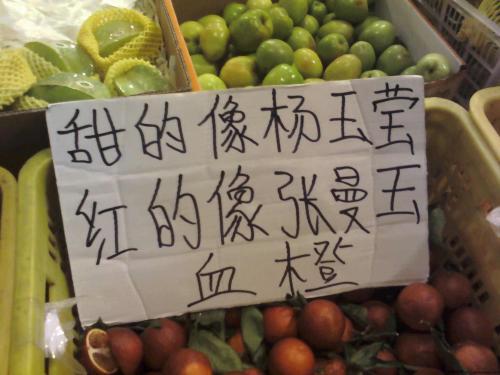 甜的像杨玉莹
红的像张曼玉
血橙